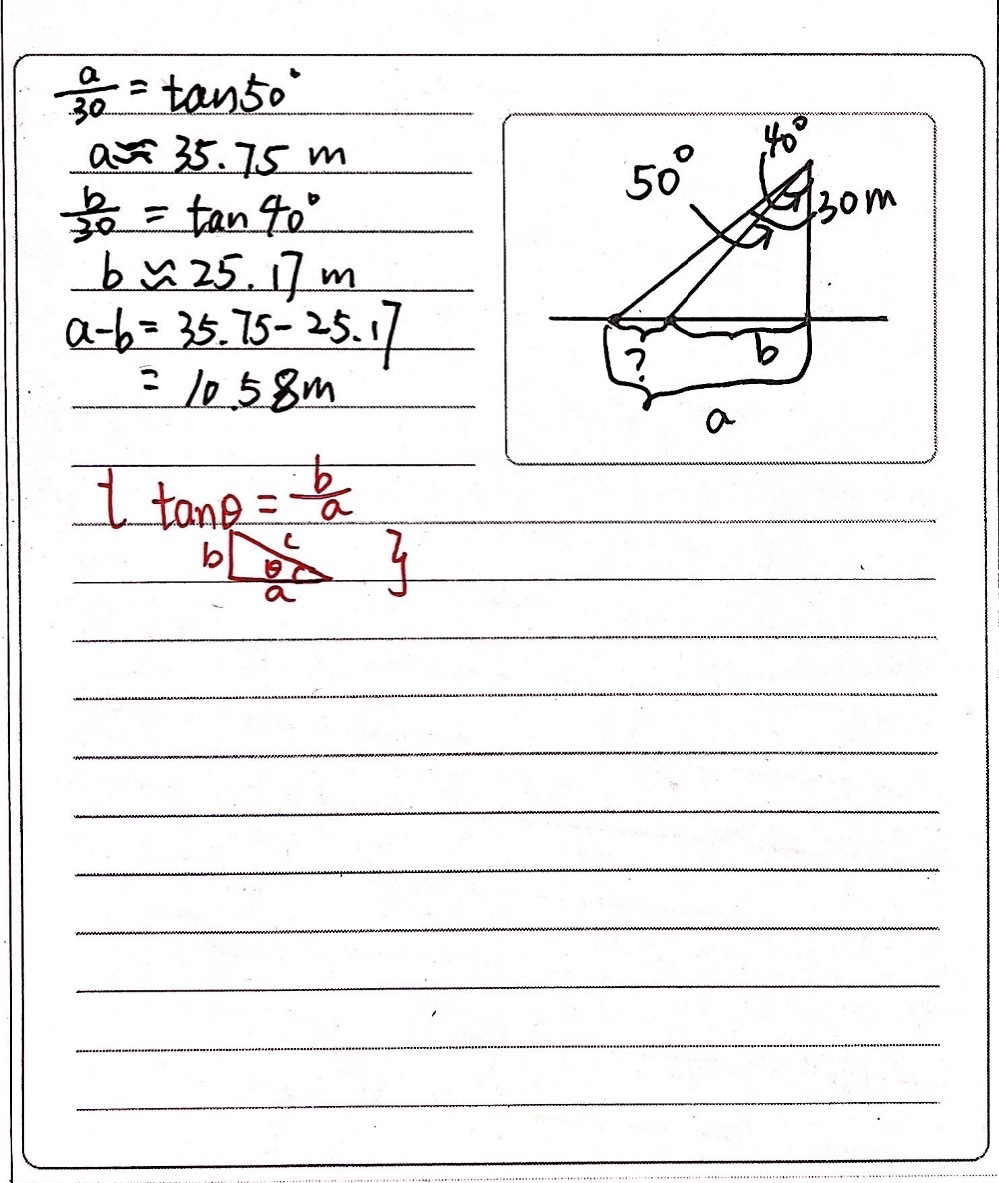 a/30 = tan50°
a≈ 35.75 m
b/30 = tan 40°
b ≈ 25.17 m
a-b= 35.75-25.17
= 10.58m
40°
50°
30m
?
b
a
{ tanθ = b/a
b
c
θ
a
}